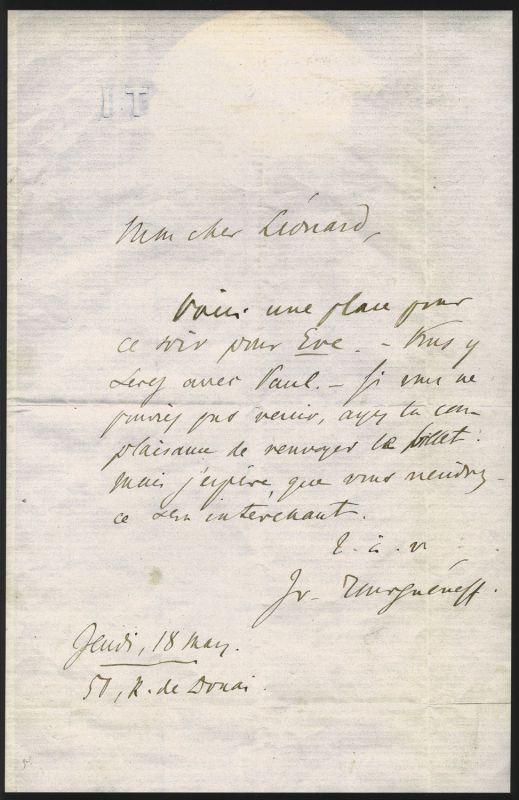 I T
Mon cher Léonard,
Voici une place pour
ce soir pour Eve. – Vous y
serez avec Paul. – Si vous ne
pouviez pas venir, ayez la com-
plaisance de renvoyer le billet:
mais j'espère que vous viendrez –
ce sera intéressant.
T. à v.
Iv. Tourguéneff.
Jeudi, 18 mars.
50, R. de Douai.